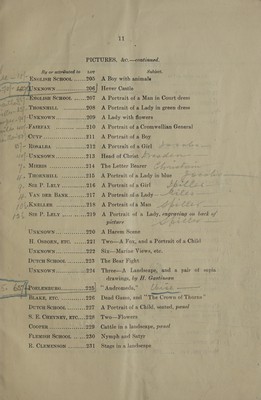 11
PICTURES, &c.—continued.
By or ascribed to LOT Subject.
ENGLISH SCHOOL 205 A Boy with animals
UNKNOWN 206 Hever Castle
ENGLISH SCHOOL 207 A Portrait of a Man in Court dress
THORNHILL 208 A Portrait of a Lady in green dress
UNKNOWN 209 A Lady with flowers
FAIRFAX 210 A Portrait of a Cromwellian General
CUYP 211 A Portrait of a Boy
ROSALBA 212 A Portrait of a Girl
UNKNOWN 213 Head of Christ
MIERIS 214 The Letter Bearer
THORNHILL 215 A Portrait of a Lady in blue
SIR P. LELY 216 A Portrait of a Girl
VAN DER BANK 217 A Portrait of a Lady
KNELLER 218 A Portrait of a Man
SIR P. LELY 219 A Portrait of a Lady, engraving on back of
picture
UNKNOWN 220 A Harem Scene
H. OSBORN, ETC. 221 Two—A Fox, and a Portrait of a Child
UNKNOWN 222 Six—Marine Views, etc.
DUTCH SCHOOL 223 The Bear Fight
UNKNOWN 224 Three—A Landscape, and a pair of sepia
drawings, by H. Gastineau
POELENBURG 225 "Andromeda."
BLAKE, ETC. 226 Dead Game, and "The Crown of Thorns"
DUTCH SCHOOL 227 A Portrait of a Child, seated, panel
S. E. CHEYNEY, ETC. 228 Two—Flowers
COOPER 229 Cattle in a landscape, panel
FLEMISH SCHOOL 230 Nymph and Satyr
R. CLEMENSON 231 Stags in a landscape